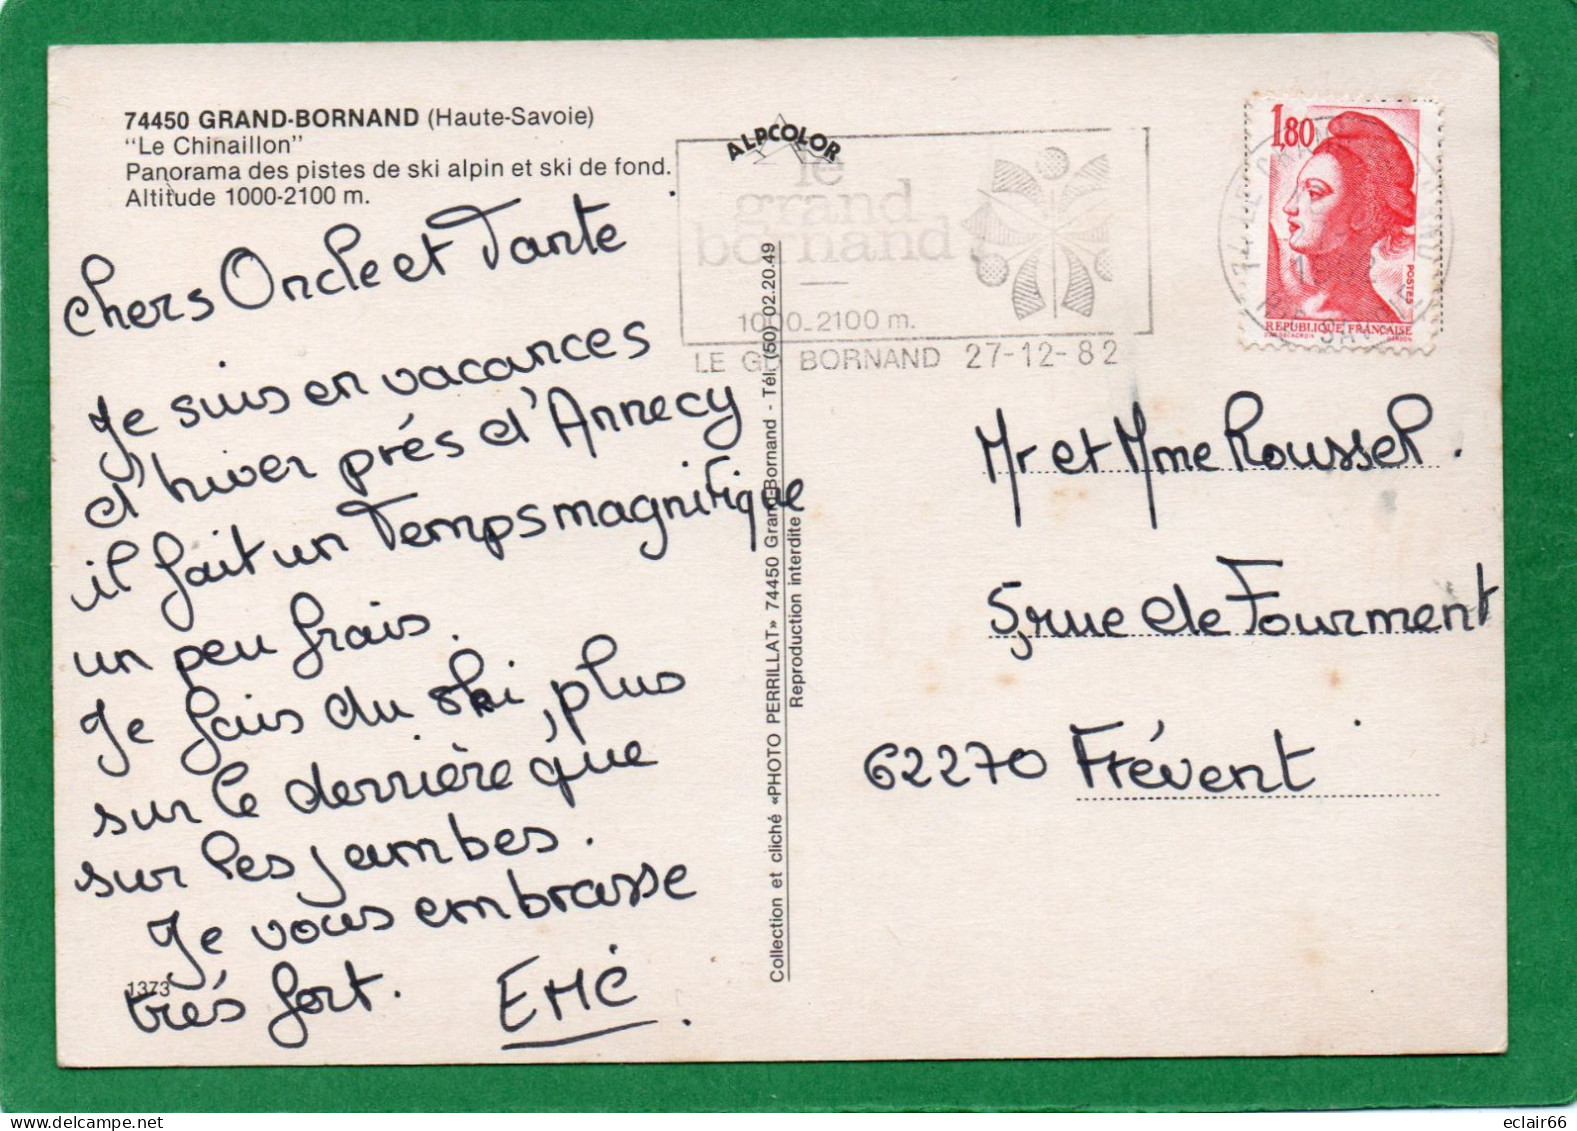 74450 GRAND-BORNAND (Haute-Savoie)
"Le Chinaillon"
Panorama des pistes de ski alpin et ski de fond.
Altitude 1000-2100 m.
ALPCOLOR
le
grand
bornand
1000-2100 m.
LE GD BORNAND 27-12-82
1,80
POSTES
REPUBLIQUE FRANÇAISE
Chers Oncle et Tante
Je suis en vacances
d'hiver prés d'Annecy
il fait un Temps magnifique
un peu frais.
Je fais du ski, plus
sur le derrière que
sur les jambes.
Je vous embrasse
trés fort.
1373
Collection et cliché «PHOTO PERRILLAT» 74450 Grand-Bornand - Tél. (50) 02.20.49
Reproduction interdite
Mr et Mme Roussel.
5, rue de Fourment
62270 Frévent
eclair66